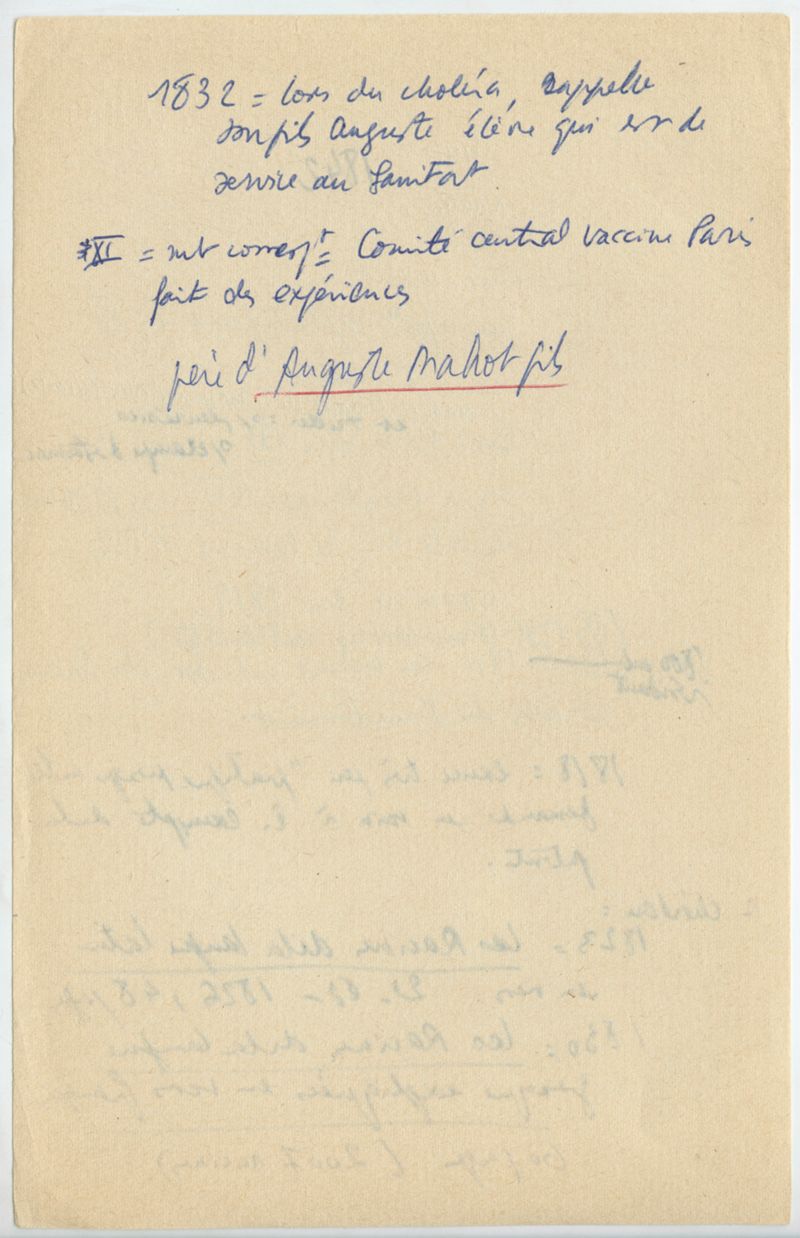 1832 = lors du choléra, rappelle
son fils Auguste élève qui est de
service au Sanitat
XI = mb corresp<sup>t</sup> = Comité central vaccine Paris
fait des expériences
père d'Auguste Mahot fils